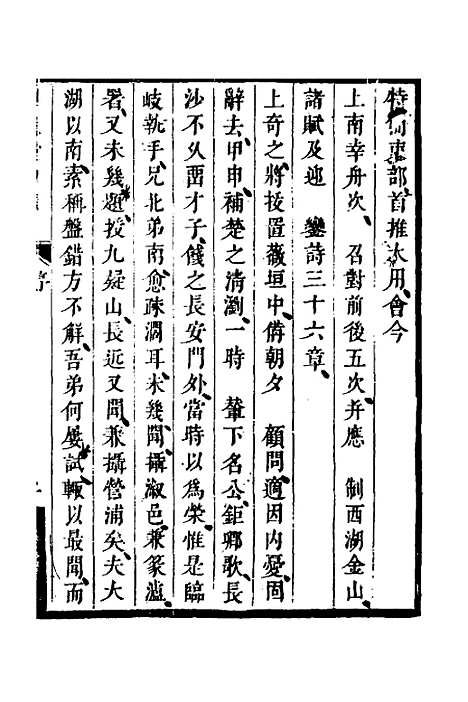 特簡吏部首推大用會今
上南幸舟次　召對前後五次并應　制西湖金山
諸賦及迎　鑾詩三十六章
上奇之將拔置薇垣中備朝夕　顧問適因內憂固
辭去甲申補楚之清瀏一時　輦下名公鉅卿歌長
沙不久畱才子餞之長安門外當時以為榮惟是臨
岐執手兄北弟南愈疎濶耳未幾聞攝漵邑兼篆瀘
署又未幾題授九疑山長近又聞兼攝營浦矣夫大
湖以南素稱盤錯方不解吾弟何屢試輒以最聞而
序